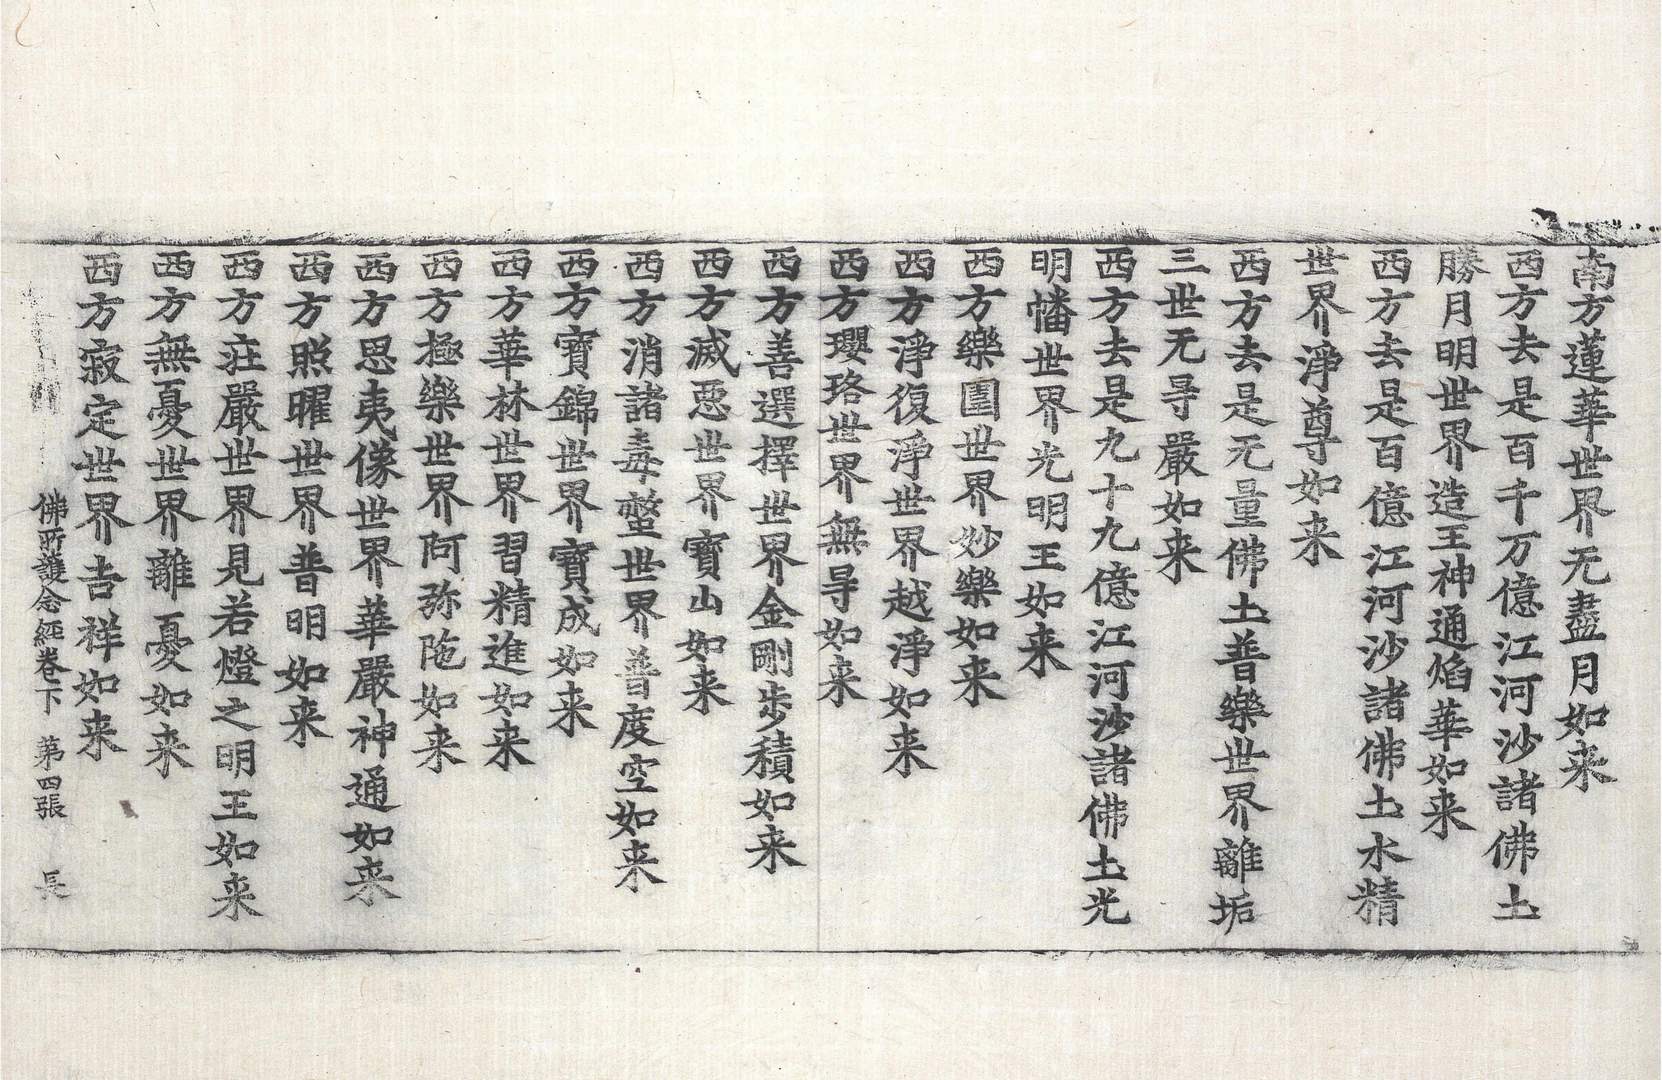 南方蓮華世界无盡月如来
西方去是百千万億江河沙諸佛土
勝月明世界造王神通焰華如来
西方去是百億江河沙諸佛土水精
世界淨尊如来
西方去是无量佛土普樂世界離垢
三世无㝵嚴如来
西方去是九十九億江河沙諸佛土光
明幡世界光明王如来
西方樂園世界妙樂如来
西方淨復淨世界越淨如来
西方瓔珞世界無㝵如来
西方善選擇世界金剛步積如来
西方滅惡世界寳山如来
西方消諸毒螫世界普度空如来
西方寳錦世界寳成如来
西方華林世界習精進如来
西方極樂世界阿弥陁如来
西方思夷像世界華嚴神通如来
西方照曜世界普明如来
西方莊嚴世界見若燈之明王如来
西方無憂世界離憂如来
西方寂定世界吉祥如来
佛所護念經卷下 第四張 長